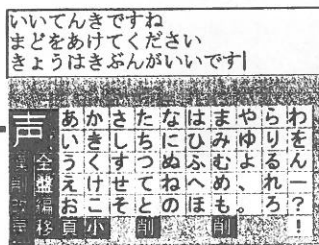 いいてんきですね
まどをあけてください
きょうはきぶんがいいです
声 あかさたなはまやらわ
いきしちにひみゆりを
全うくすつぬふむよるん
盤えけせてねへめ、れー
編おこそとのほも。ろ?
移頁小 削 削 !